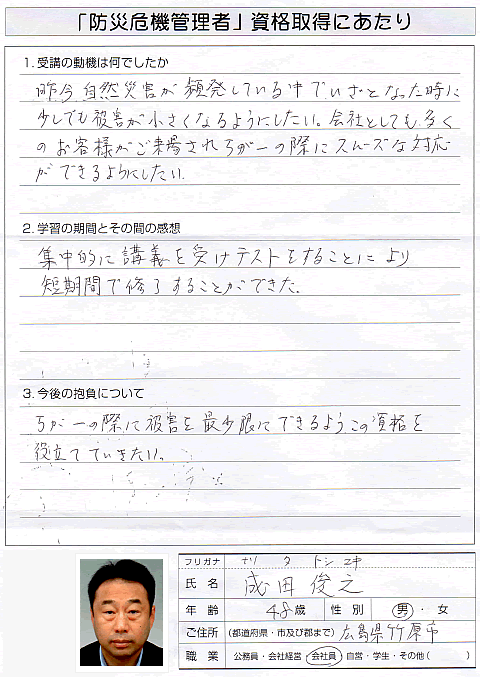 「防災危機管理者」資格取得にあたり
1.受講の動機は何でしたか
昨今自然災害が頻発している中でいざとなった時に
少しでも被害が小さくなるようにしたい。会社としても多く
のお客様がご来場され万が一の際にスムーズな対応
ができるようにしたい。
2.学習の期間とその間の感想
集中的に講義を受けテストをすることにより
短期間で修了することができた。
3.今後の抱負について
万が一の際に被害を最少限にできるようこの資格を
役立てていきたい。
フリガナ ナリ タ トシ ユキ
氏名 成田俊之
年齢 48歳 性別 男・女
ご住所 (都道府県・市及び郡まで) 広島県竹原市
職業 公務員・会社経営・会社員・自営・学生・その他( )